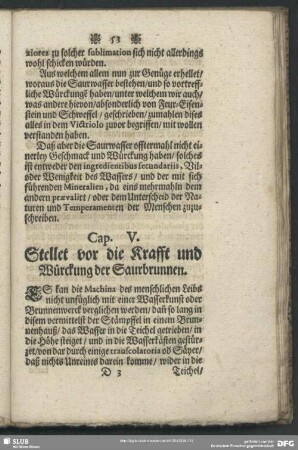 ❋ 53 ❋
riores zu solcher sublimation sich nicht allerdings
wohl schicken würden.
Aus welchem allem nun zur Genüge erhellet/
woraus die Saurwasser bestehen/und so vortreff-
liche Würckungē haben/unter welchem wir auch/
was andere hiervon/absonderlich von Feur-Eisen-
stein und Schweffel/ geschrieben/zumahlen dises
alles in dem Victriolo zuvor begriffen/mit wollen
verstanden haben.
Daß aber die Saurwasser offtermahl nicht ei-
nerley Geschmack und Würckung haben/ solches
ist entweder den ingredientibus secundariis, Vil-
oder Wenigkeit des Wassers/ und der mit sich
führenden Mineralien, da eins mehrmahln dem
andern prævalirt/oder dem Unterscheid der Na-
turen und Temperamenten der Menschen zuzu-
schreiben.
Cap. V.
Stellet vor die Krafft und
Würckung der Saurbrunnen.
ES kan die Machina des menschlichen Leibs
nicht unfüglich mit einer Wasserkunst oder
Brunnenwerck verglichen werden/ dañ so lang in
disem vermittelst der Stämpffel in einem Brun-
nenhauß/ das Wasser in die Teichel getrieben/ in
die Höhe steiget/ und in die Wasserkästen gestür-
tzet/von dar durch einige trauscolatoria od Säyer/
daß nichts Unreines darein komme/ wider in die
D 3 Teichel/
SLUB